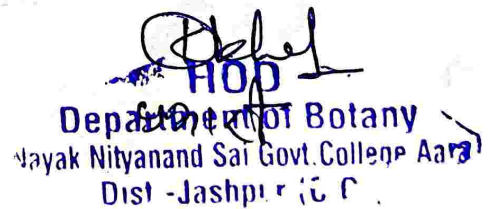 HOD
Department of Botany
Nayak Nityanand Sai Govt. College Aara
Dist - Jashpur